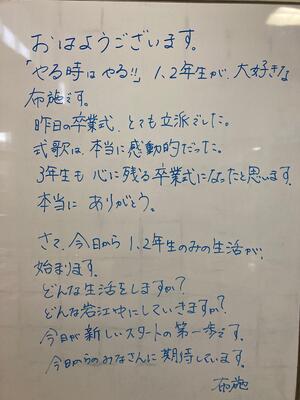 おはようございます。
「やる時はやる!!」1、2年生が、大好きな
布施です。
昨日の卒業式、とても立派でした。
式歌は、本当に感動的だった。
3年生も心に残る卒業式になったと思います。
本当に ありがとう。
さて、今日から1、2年生のみの生活が、
始まります。
どんな生活をしますか?
どんな岩江中にしていきますか?
今日が新しいスタートの第一歩です。
今日からのみなさんに期待しています。
布施